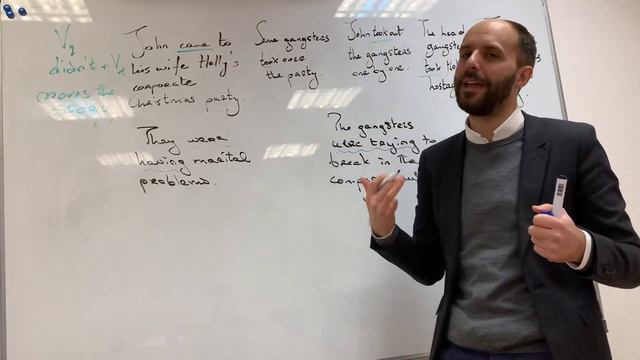 V2
didn't + V1
moves the
story
John came to
his wife Holly's
corporate
Christmas party.
Some gangsters
took over
the party.
John took out
the gangsters
one by one.
The head
gangster
took Holly
hostage
They were
having marital
problems.
The gangsters
were trying to
break in the